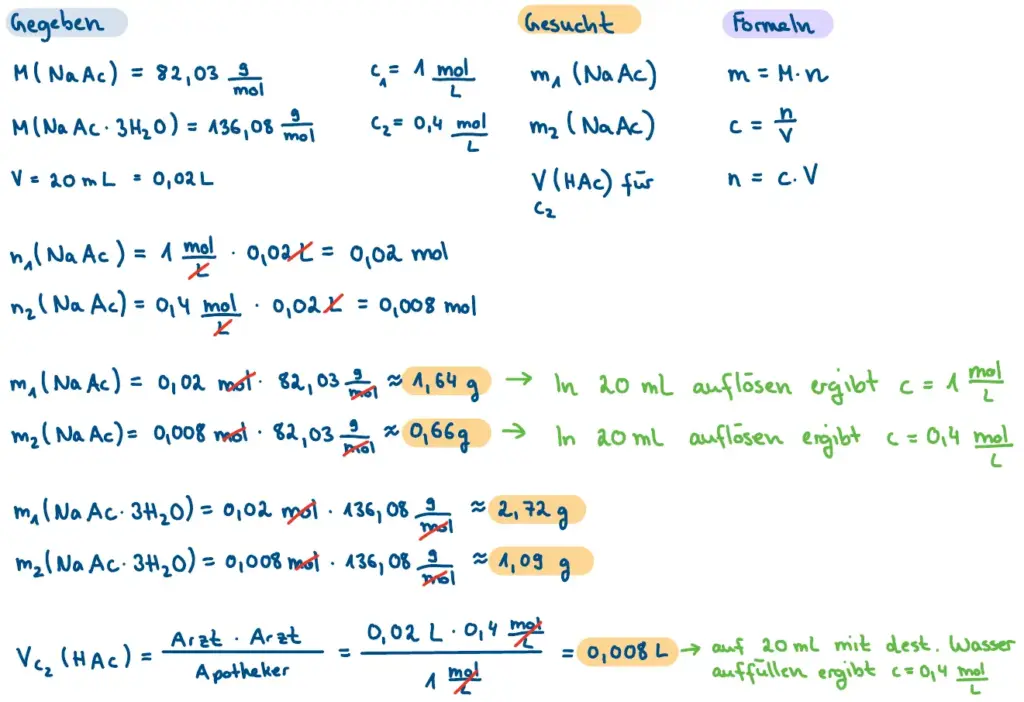 Gegeben Gesucht Formeln
M(NaAc) = 82,03 g/mol c₁ = 1 mol/L m₁ (NaAc) m = M·n
M(NaAc·3H₂O) = 136,08 g/mol c₂ = 0,4 mol/L m₂ (NaAc) c = n/V
V = 20 mL = 0,02 L V(HAc) für c₂ n = c·V
n₁(NaAc) = 1 mol/L · 0,02 L = 0,02 mol
n₂(NaAc) = 0,4 mol/L · 0,02 L = 0,008 mol
m₁(NaAc) = 0,02 mol · 82,03 g/mol ≈ 1,64 g → In 20 mL auflösen ergibt c = 1 mol/L
m₂(NaAc) = 0,008 mol · 82,03 g/mol ≈ 0,66g → In 20 mL auflösen ergibt c = 0,4 mol/L
m₁(NaAc·3H₂O) = 0,02 mol · 136,08 g/mol ≈ 2,72 g
m₂(NaAc·3H₂O) = 0,008 mol · 136,08 g/mol ≈ 1,09 g
V_c₂ (HAc) = Arzt · Arzt / Apotheker = 0,02 L · 0,4 mol/L / 1 mol/L = 0,008 L → auf 20 mL mit dest. Wasser
auffüllen ergibt c = 0,4 mol/L